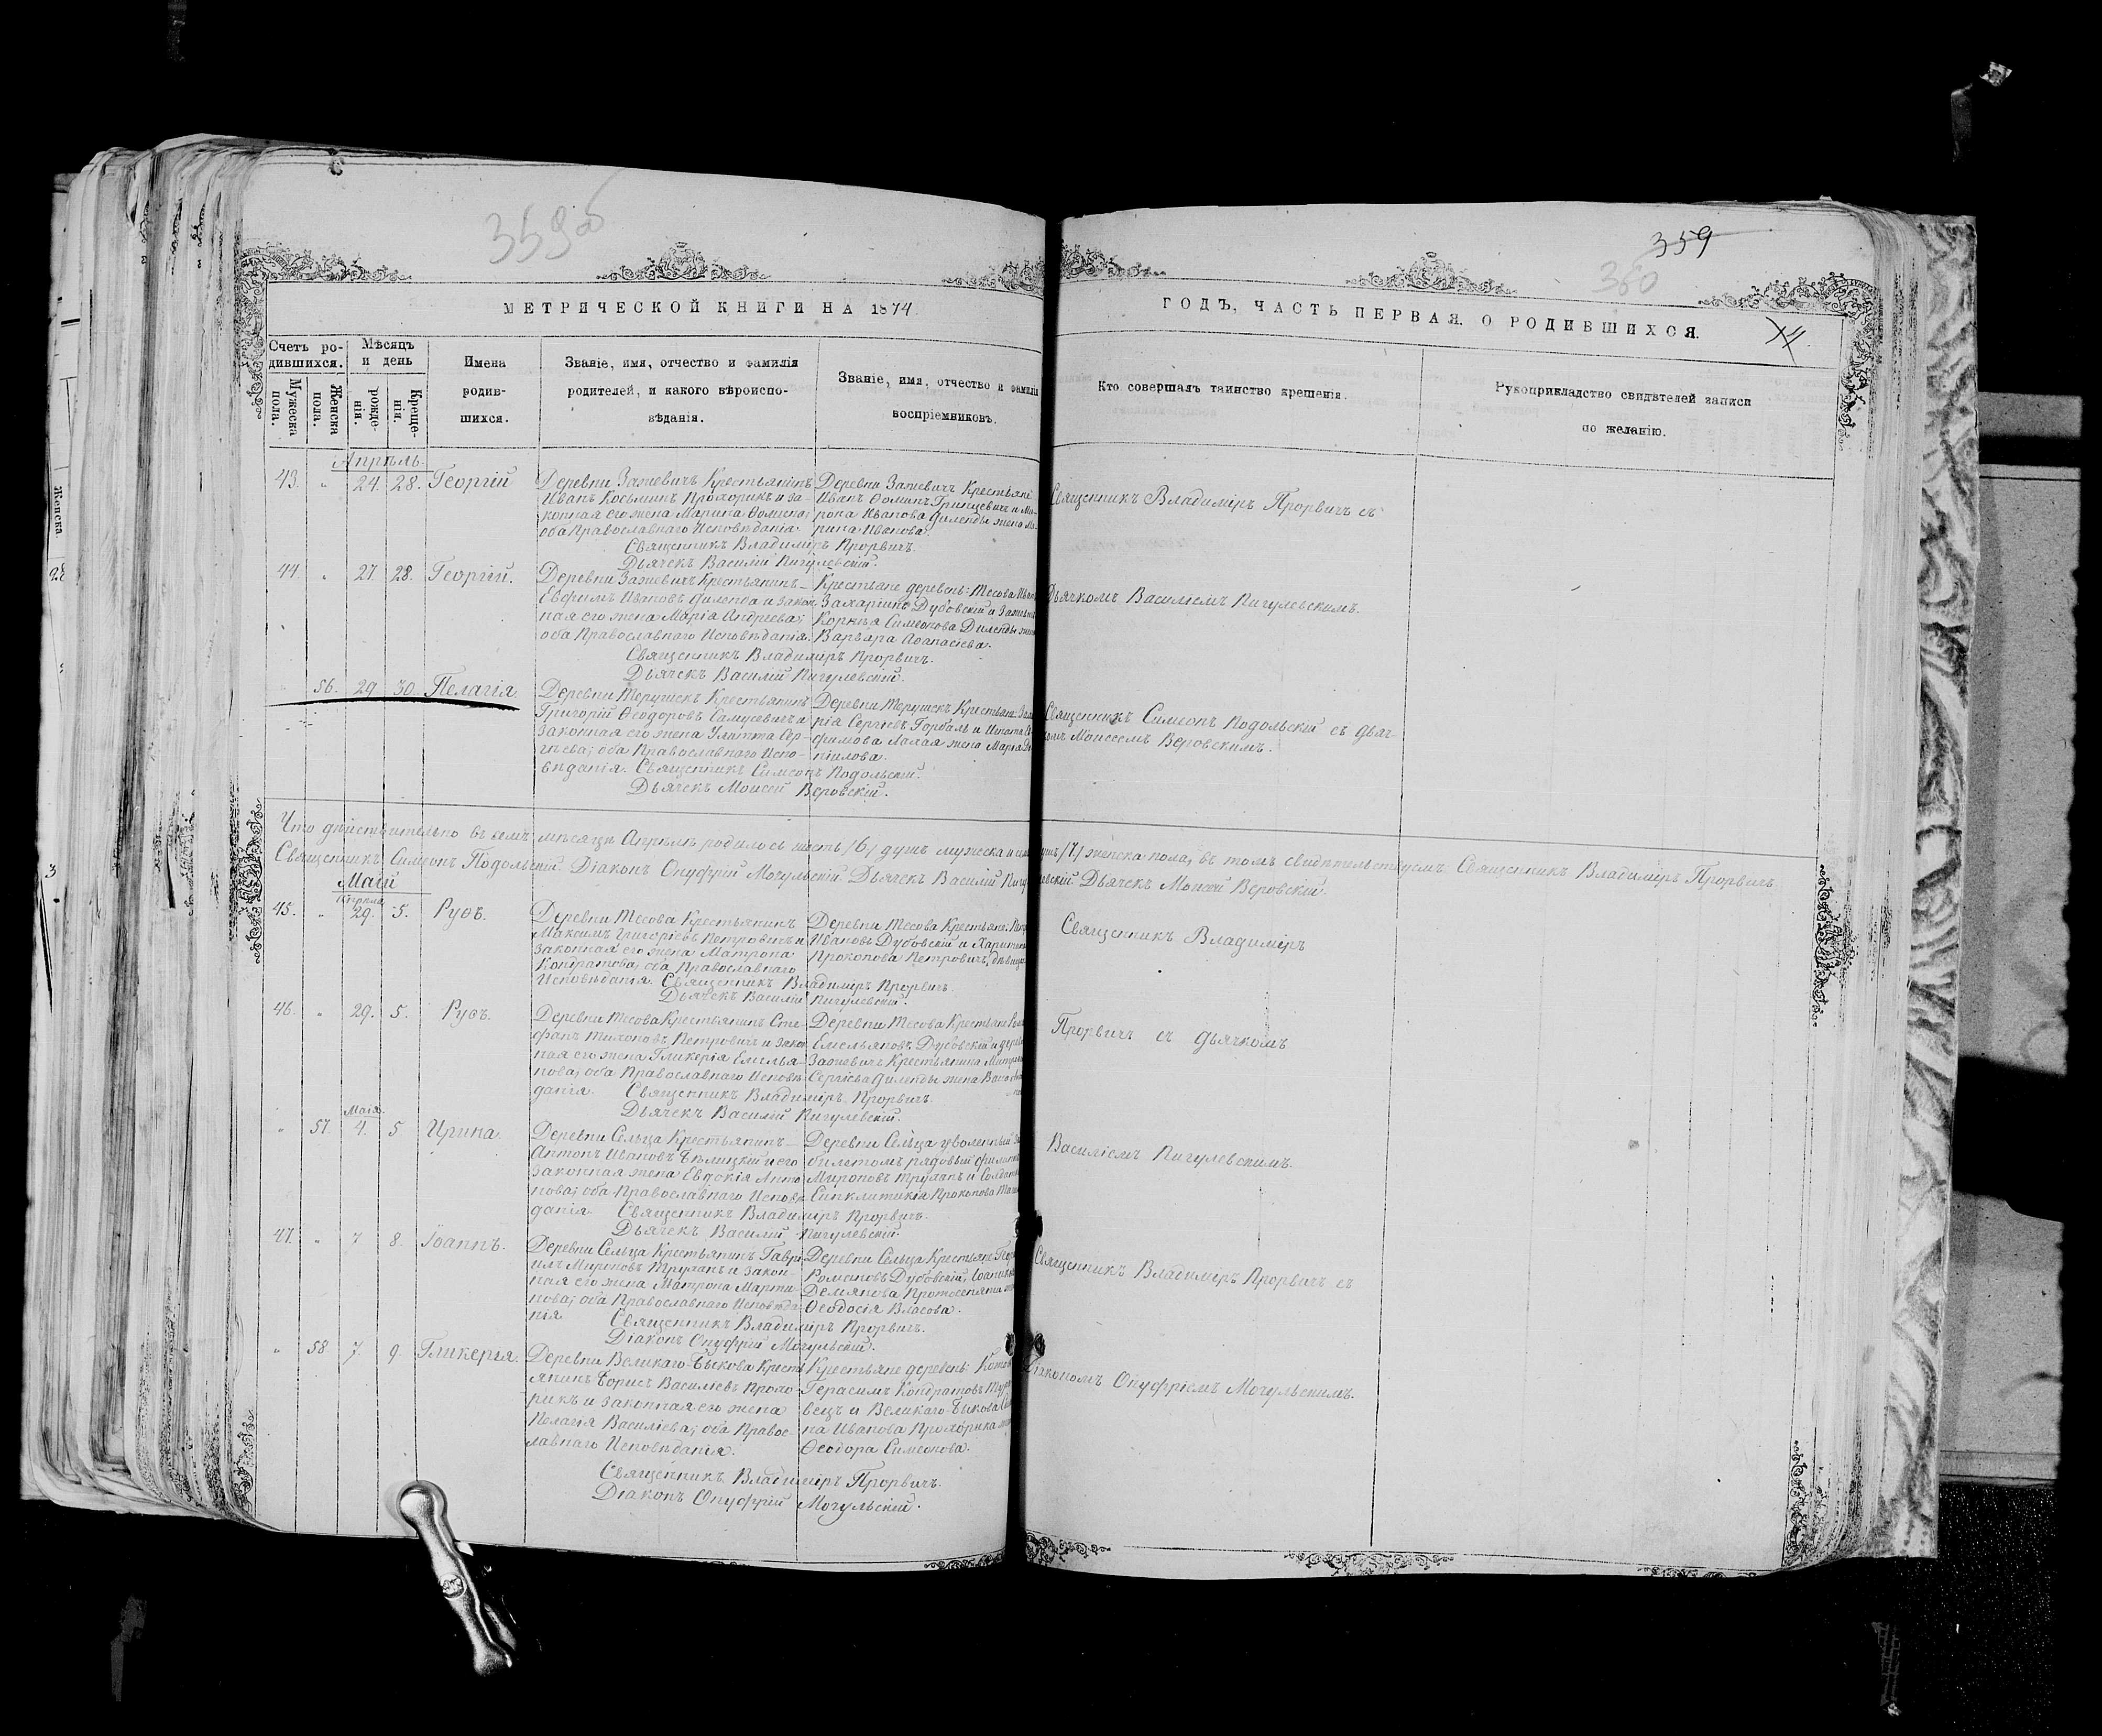 359об
359
360
МЕТРИЧЕСКОЙ КНИГИ НА 1874
ГОДЪ, ЧАСТЬ ПЕРВАЯ. О РОДИВШИХСЯ.
Счетъ ро-
дившихся.
Мужеска
пола.
Женска
пола.
Мѣсяцъ
и день
рожде-
нія.
Креще-
нія.
Имена
родив-
шихся.
Званіе, имя, отчество и фамилія
родителей, и какого вѣроиспо-
вѣданія.
Званіе, имя, отчество и фамилія
воспріемниковъ.
Кто совершалъ таинство крещенія.
Рукоприкладство свидѣтелей записи
по желанію.
Апрѣль.
43. " 24. 28. Георгій
Деревни Зажевичъ Крестьянинъ
Иванъ Косьминъ Прохорикъ и за-
конная его жена Марина Ѳомина;
оба Православнаго Исповѣданія.
Деревни Зажевичъ Крестьяне
Иванъ Ѳоминъ Гринцевичъ и Ми-
рона Иванова Диленды жена Ма-
рина Иванова.
Священникъ Владиміръ Прорвичъ.
Дьячекъ Василій Пигулевскій.
Священникъ Владиміръ Прорвичъ съ
44. " 27. 28. Георгій.
Деревни Зажевичъ Крестьянинъ
Евфимъ Ивановъ Диленда и закон-
ная его жена Марія Андреева;
оба Православнаго Исповѣданія.
Крестьяне деревень: Тесова
Захаринъ Дубовскій и
Корнѣя Симеонова Диленды жена
Варвара Аѳанасіева.
Священникъ Владиміръ Прорвичъ.
Дьячекъ Василій Пигулевскій.
Дьячкомъ Василіемъ Пигулевскимъ.
" 56. 29 30. Пелагія.
Деревни Терушекъ Крестьянинъ
Григорій Ѳеодоровъ Самусевичъ и
законная его жена Улита Сер-
гѣева; оба Православнаго Испо-
вѣданія. Священникъ Симеонъ Подольскій.
Дьячекъ Моисей Веровскій.
Деревни Терушекъ Крестьяне:
Сергѣевъ Горбаль и Игната
фимова Лахая жена Марія
Священникъ Симеонъ Подольскій съ Дьяч-
комъ Моисеемъ Веровскимъ.
Что дѣйствительно въ семъ мѣсяцѣ Апрѣлѣ родилось шесть /6/ душъ мужеска и /7/ женска пола, въ томъ свидѣтельствуемъ: Священникъ Владиміръ Прорвичъ.
Священникъ Симеонъ Подольскій Діаконъ Онуфрій Могульскій Дьячекъ Василій Пигулевскій Дьячекъ Моисей Веровскій.
Маій
Апрѣля
45. " 29. 5. Руѳъ.
Деревни Тесова Крестьянинъ
Максимъ Григорьевъ Петровичъ и
законная его жена Матрона
Кондратова; оба Православнаго
Исповѣданія. Священникъ Владиміръ Прорвичъ.
Дьячекъ Василій Пигулевскій.
Деревни Тесова Крестьяне:
Ивановъ Дубовскій и
Прокопова Петровичъ, дѣвица
Священникъ Владиміръ
46. " 29. 5. Руѳъ.
Деревни Тесова Крестьянинъ Сте-
фанъ Тихоновъ Петровичъ и закон-
ная его жена Гликерія Емелья-
нова; оба Православнаго Исповѣ-
данія. Священникъ Владиміръ Прорвичъ.
Дьячекъ Василій Пигулевскій.
Деревни Тесова Крестьяне
Емельяновъ Дубовскій и
Зажевичъ Крестьянина
Сергѣева Диленды жена
Прорвичъ съ дьячкомъ
Маія.
" 57. 4. 5 Ирина.
Деревни Сельца Крестьянинъ
Антонъ Ивановъ Бѣлицкій и его
законная жена Евдокія Анто-
нова; оба Православнаго Исповѣ-
данія. Священникъ Владиміръ Прорвичъ.
Дьячекъ Василій Пигулевскій.
Деревни Сельца уволенный за
билетомъ рядовый
Мироновъ Труханъ и
Синклитикія Прокопова
Василіемъ Пигулевскимъ.
47. " 7 8. Іоаннъ.
Деревни Сельца Крестьянинъ Гаврі-
илъ Мироновъ Труханъ и закон-
ная его жена Матрона Марти-
нова; оба Православнаго Исповѣда-
нія Священникъ Владиміръ Прорвичъ.
Діаконъ Онуфрій Могульскій.
Деревни Сельца Крестьяне
Романовъ Дубовскій,
Демянова Протосеняти
Ѳеодосія Власова.
Священникъ Владиміръ Прорвичъ съ
" 58 7. 9. Гликерія.
Деревни Великаго-Быкова Кресть-
янинъ Борисъ Василіевъ Прохо-
рикъ и законная его жена
Пелагія Василіева; оба Правос-
лавнаго Исповѣданія.
Крестьяне деревень:
Герасимъ Кондратовъ
вецъ и Великаго-Быкова
на Иванова Прохорика
Ѳеодора Симеонова.
Священникъ Владиміръ Прорвичъ.
Діаконъ Онуфрій Могульскій.
Діакономъ Онуфріемъ Могульскимъ.